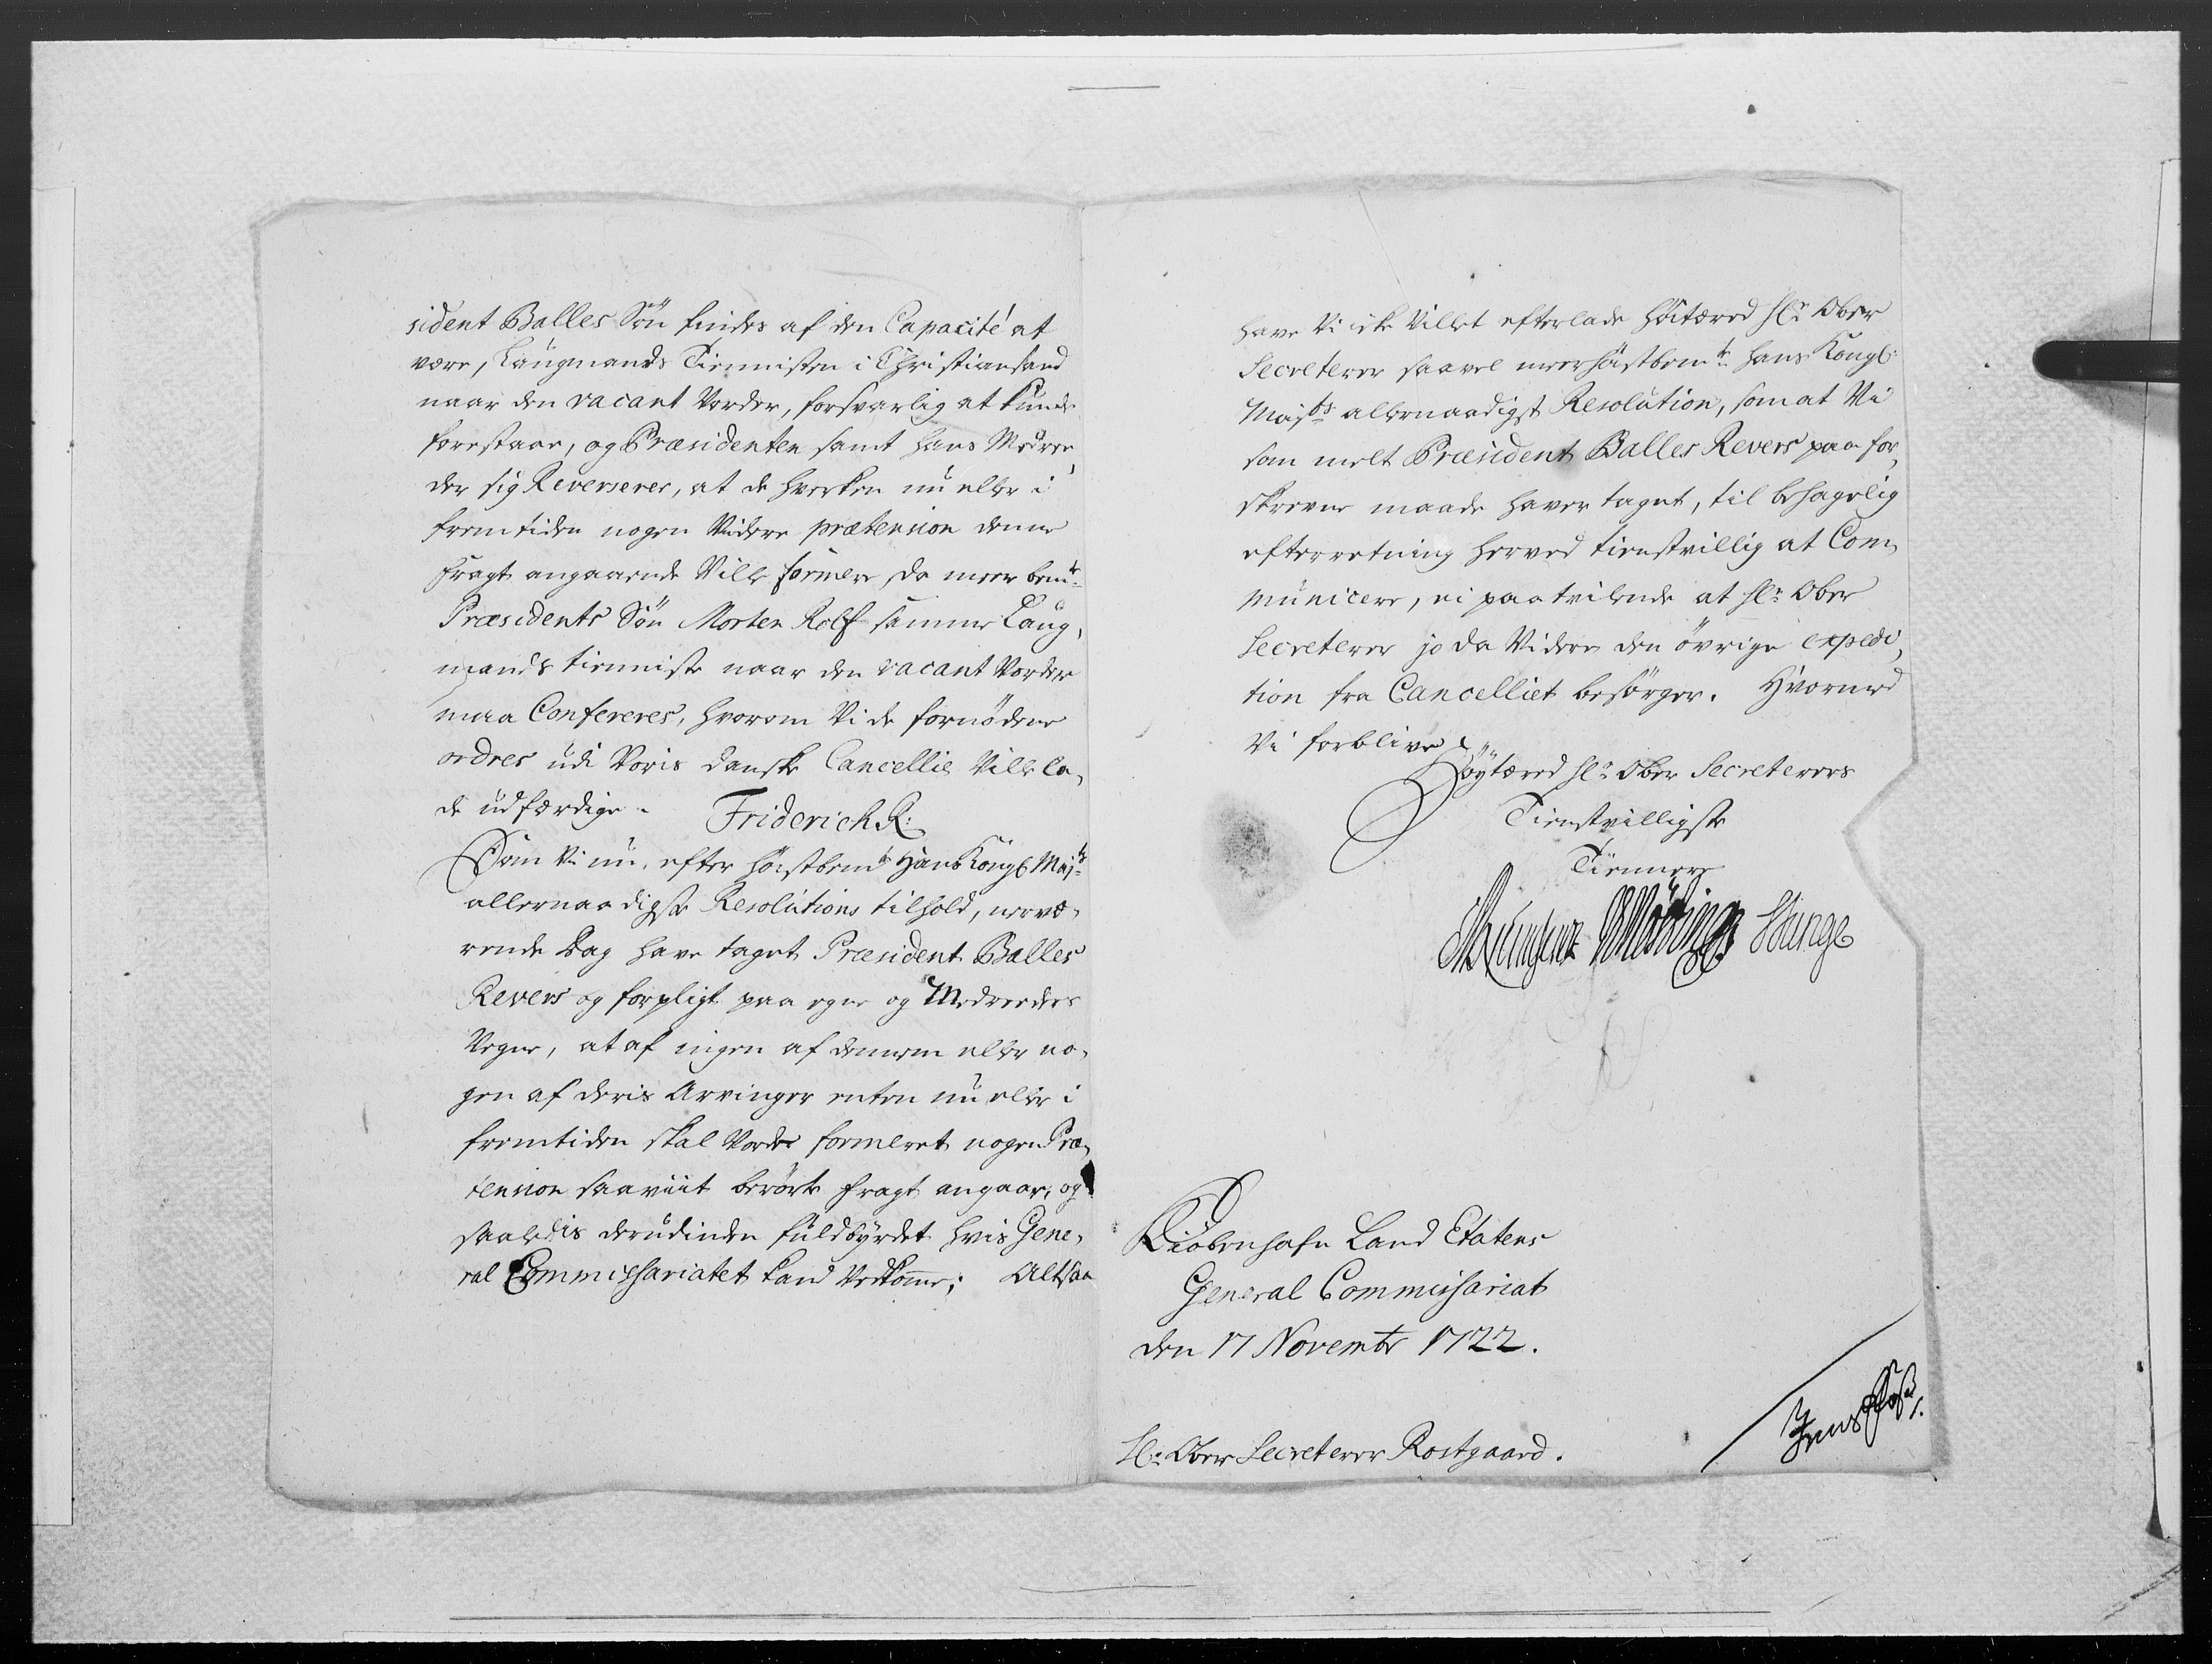 sident Balles Sön findes af den Capacité at
være, Laugmands Tiennisten i Christiansand
naar den vacant Vorder, forsvarlig at kunde
forestaae, og Præsidenten samt hans Medree,
der sig Reverserer, at de hverken nu eller i
fremtiden nogen Videre prætension denne
fragt angaaende Ville formere, da meerbemte
Præsidents Sön Morten Rolf samme Laug,
mands tienniste naar den vacant Vorder
maa Confereres, hvorom Vi de fornödene
ordres udi Voris danske Cancellie Ville la,
de udfærdige. Friderich R:
Som Vi nu, efter höistbemte Hans Kongl Majts
allernaadigste Resolutions tilhold, nerve,
rende Dag have taget Præsident Balles
Revers og forpligt paa egne og Medreders
Vegne, at af ingen af dennem eller no,
gen af deris Arvinger enten nu eller i
fremtiden skal Vorde formeret nogen Præ,
tension saaviit berörte fragt angaar, og
saaledis derudinden fuldbyrdet hvis Gene,
ral Commissariatet kand Vedkomme; Altsaa
have Vi icke Villet efterlade Höitærede Hr Ober
Secreterer saavel meerhöistbemte Hans Kongl:
Majts allernaadigst Resolution, som at Vi
som melt Præsident Balles Revers paa for,
skrevne maade haver taget, til behagelig
efterretning herved tienstvillig at Com,
municere, ei paatvilende at Hr Ober
Secreterer jo da Videre den övrige expedi,
tion fra Cancelliet besörger. Hvormed
Vi forblive
Höytærede Hr Ober Secreterers
Tienstvilligste
Tiennere
Kiöbenhafn Land Etatens
General Commissariat
den 17 Novembr 1722.
Hr: Ober Secreterer Rostgaard.